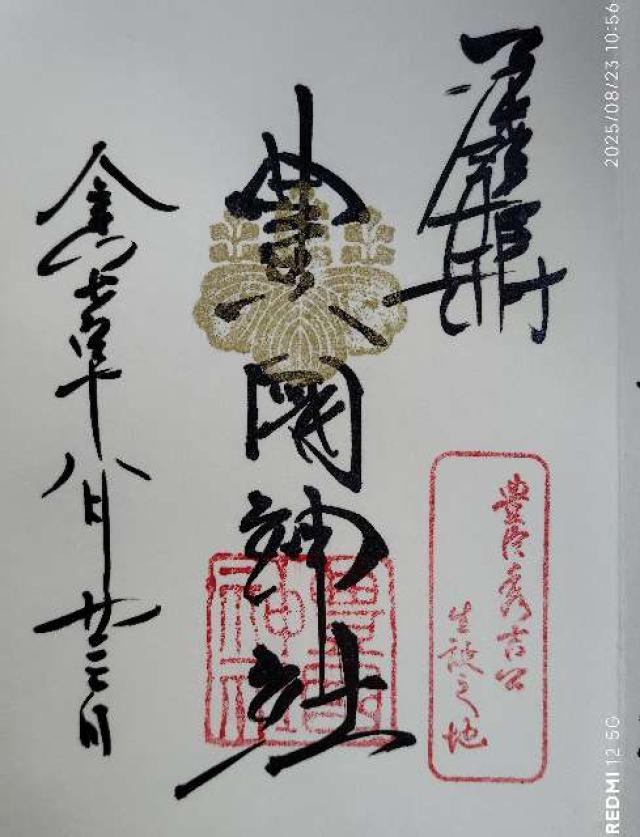 奉拝
豊國神社
豊國神社
豊臣秀吉公
生誕之地
令和七年八月廿三日
2025/08/23 10:56
REDMI 12 5G